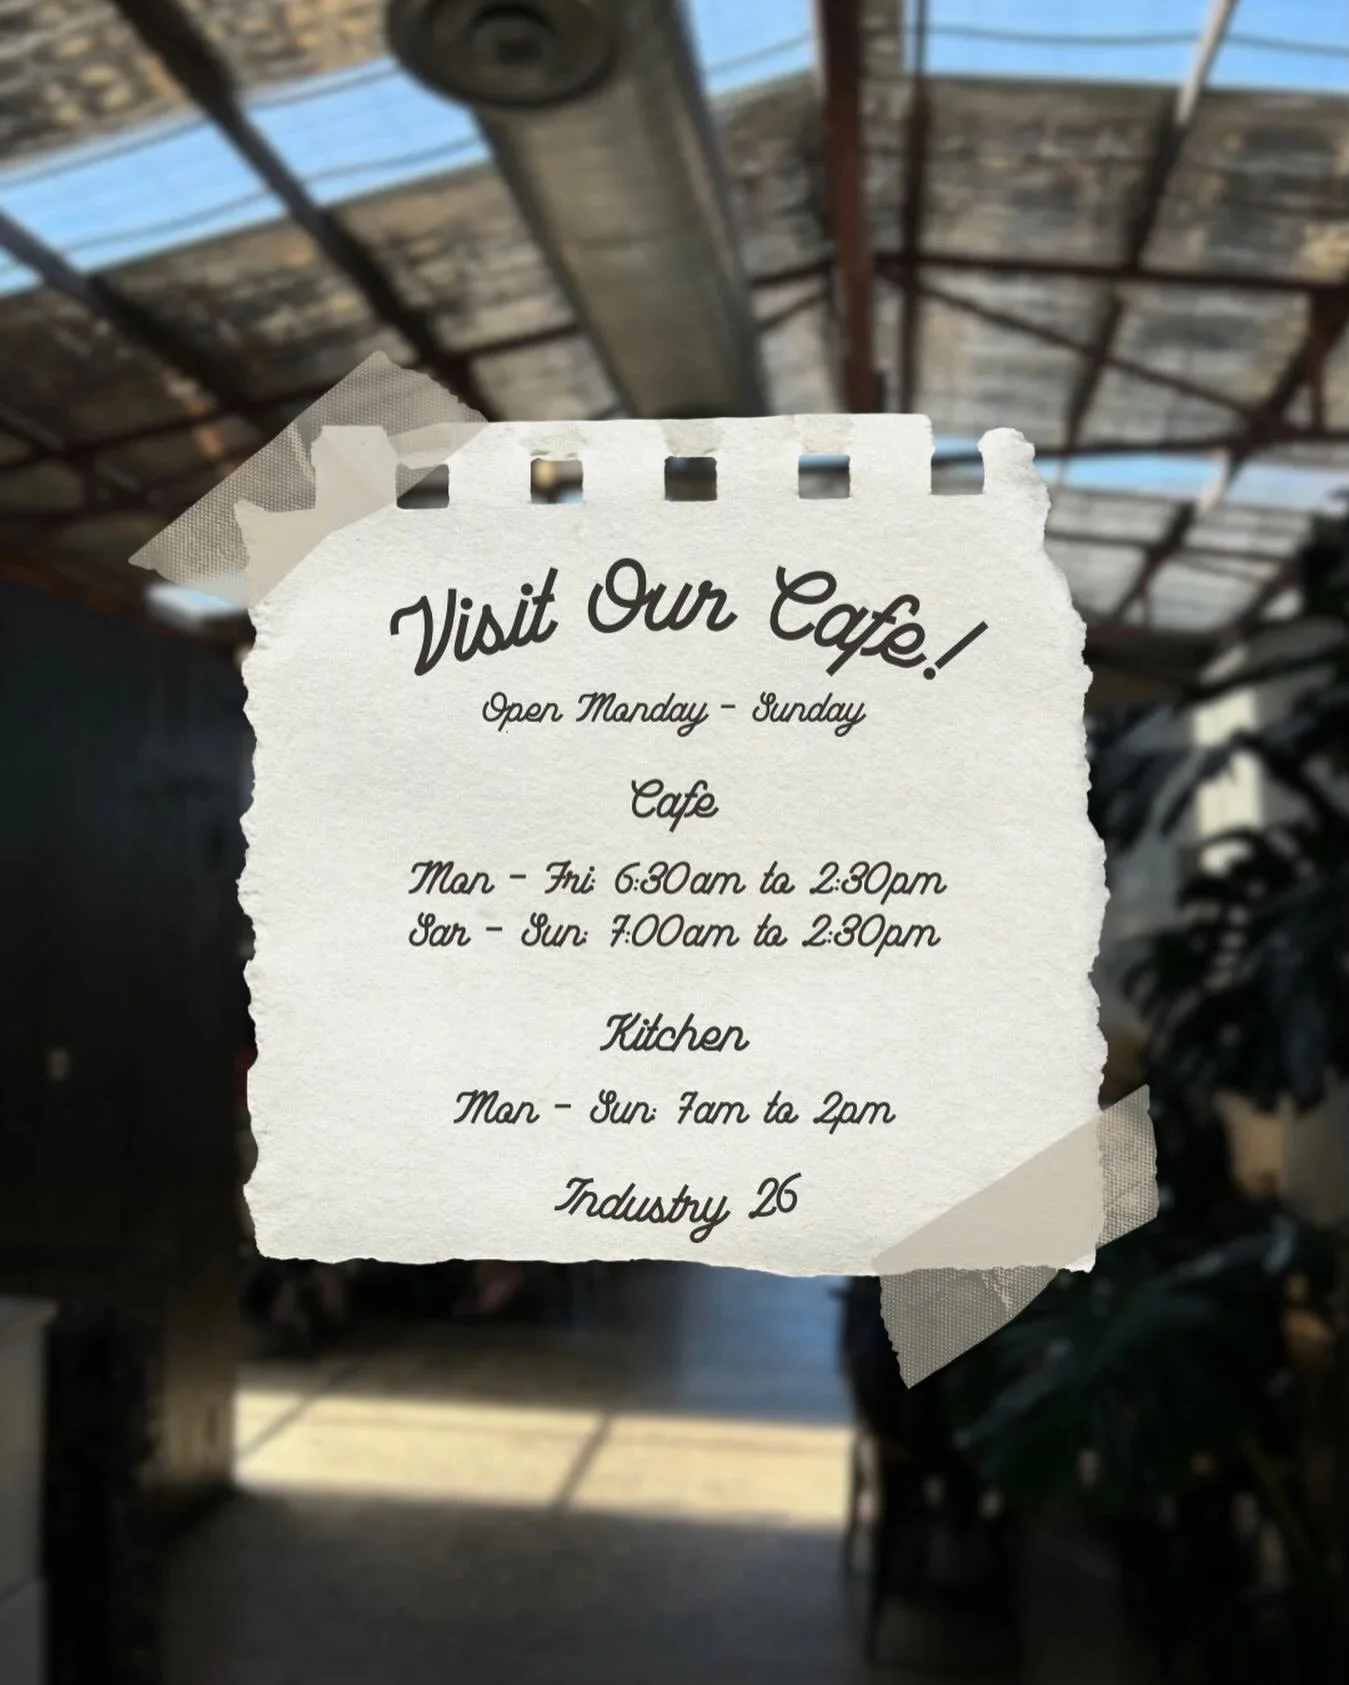 Visit Our Cafe!
Open Monday - Sunday
Cafe
Mon - Fri: 6:30am to 2:30pm
Sar - Sun: 7:00am to 2:30pm
Kitchen
Mon - Sun: 7am to 2pm
Industry 26